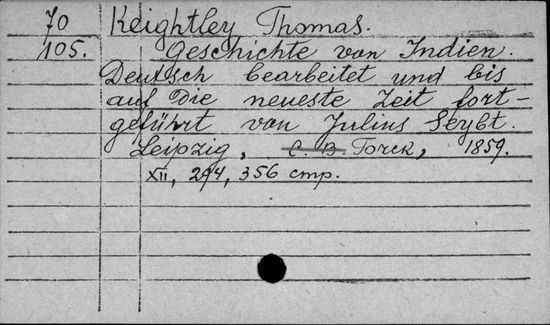 70 Keightley Thomas.
105. Geschichte von Indien.
Deutsch bearbeitet und bis
auf die neueste Zeit fort-
geführt von Julius Seybt.
Leipzig, C. B. Lorck, 1859.
XII, 294, 356 cmp.